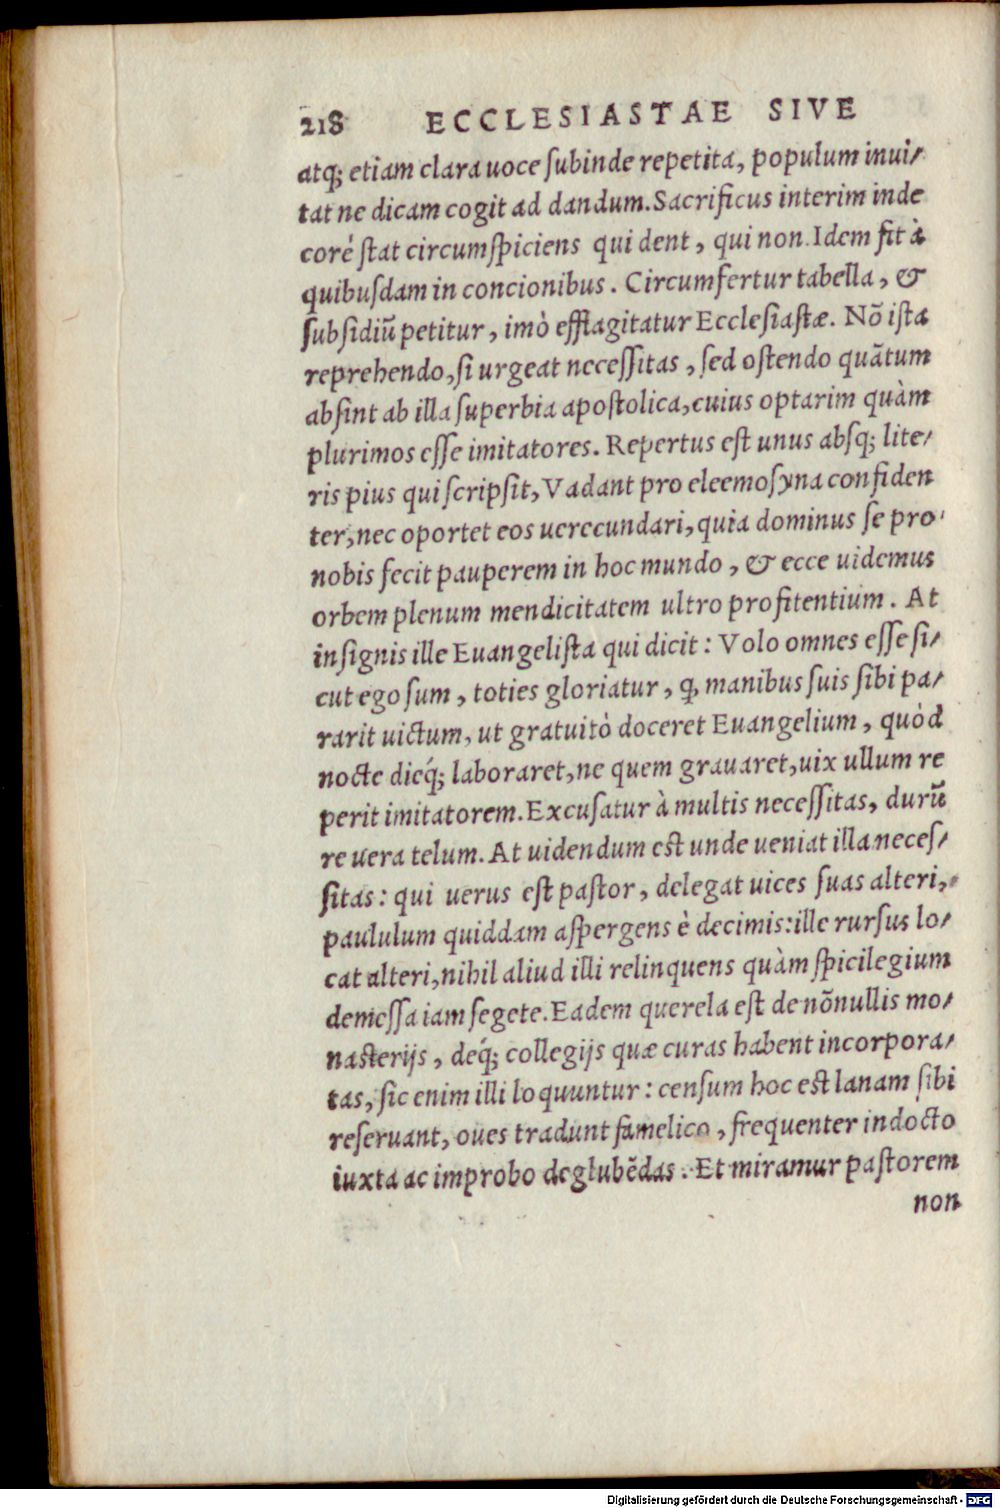 218 ECCLESIASTAE SIVE
atq; etiam clara uoce subinde repetita, populum inui/
tat ne dicam cogit ad dandum. Sacrificus interim inde
corè stat circumspiciens qui dent, qui non. Idem fit à
quibusdam in concionibus. Circumfertur tabella, &
subsidiũ petitur, imò efflagitatur Ecclesiastæ. Nõ ista
reprehendo, si urgeat necessitas, sed ostendo quãtum
absint ab illa superbia apostolica, cuius optarim quàm
plurimos esse imitatores. Repertus est unus absq; lite/
ris pius qui scripsit, Vadant pro eleemosyna confiden
ter, nec oportet eos uerecundari, quia dominus se pro
nobis fecit pauperem in hoc mundo, & ecce uidemus
orbem plenum mendicitatem ultro profitentium. At
insignis ille Euangelista qui dicit: Volo omnes esse si/
cut ego sum, toties gloriatur, ꝙ manibus suis sibi pa/
rarit uictum, ut gratuitò doceret Euangelium, quòd
nocte dieq́; laboraret, ne quem grauaret, uix ullum re
perit imitatorem. Excusatur à multis necessitas, durũ
re uera telum. At uidendum est unde ueniat illa neces/
sitas: qui uerus est pastor, delegat uices suas alteri,
paululum quiddam aspergens è decimis: ille rursus lo/
cat alteri, nihil aliud illi relinquens quàm spicilegium
demessa iam segete. Eadem querela est de nõnullis mo/
nasterijs, deq́; collegijs quæ curas habent incorpora/
tas, sic enim illi loquuntur: censum hoc est lanam sibi
reseruant, oues tradunt famelico, frequenter indocto
iuxta ac improbo deglubẽdas. Et miramur pastorem
non
Digitalisierung gefördert durch die Deutsche Forschungsgemeinschaft - DFG